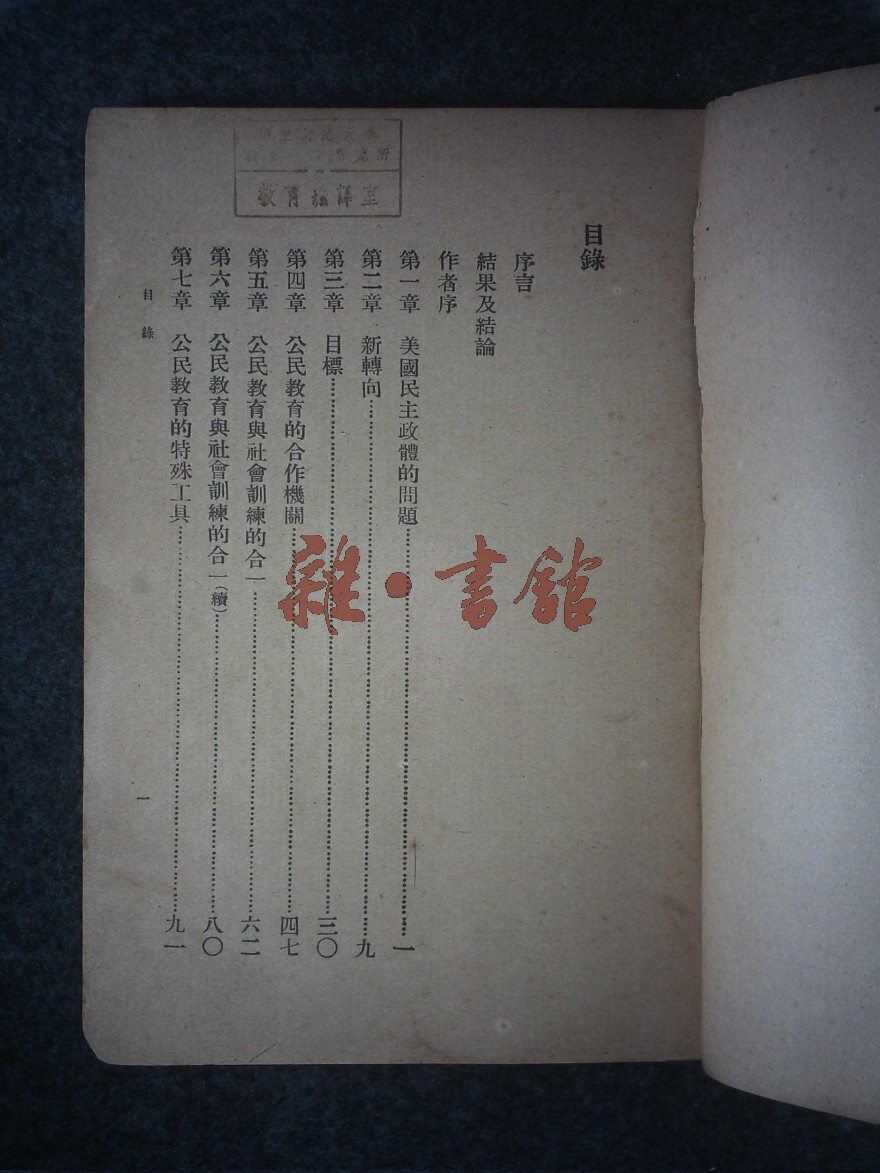 目錄
序言
結果及結論
作者序
第一章 美國民主政體的問題……一
第二章 新轉向……九
第三章 目標……三〇
第四章 公民教育的合作機關……四七
第五章 公民教育與社會訓練的合一……六二
第六章 公民教育與社會訓練的合一(續)……八〇
第七章 公民教育的特殊工具……九一
目錄
一
教育編譯室
雜·書館